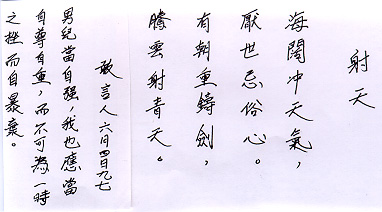 射天
海闊冲天氣，
厭世忌俗心。
有朝重鑄劍，
騰雲射青天。
敢言人六月四日九七
男兒當自强，我也應當
自尊自重，而不可為一時
之挫而自暴棄。